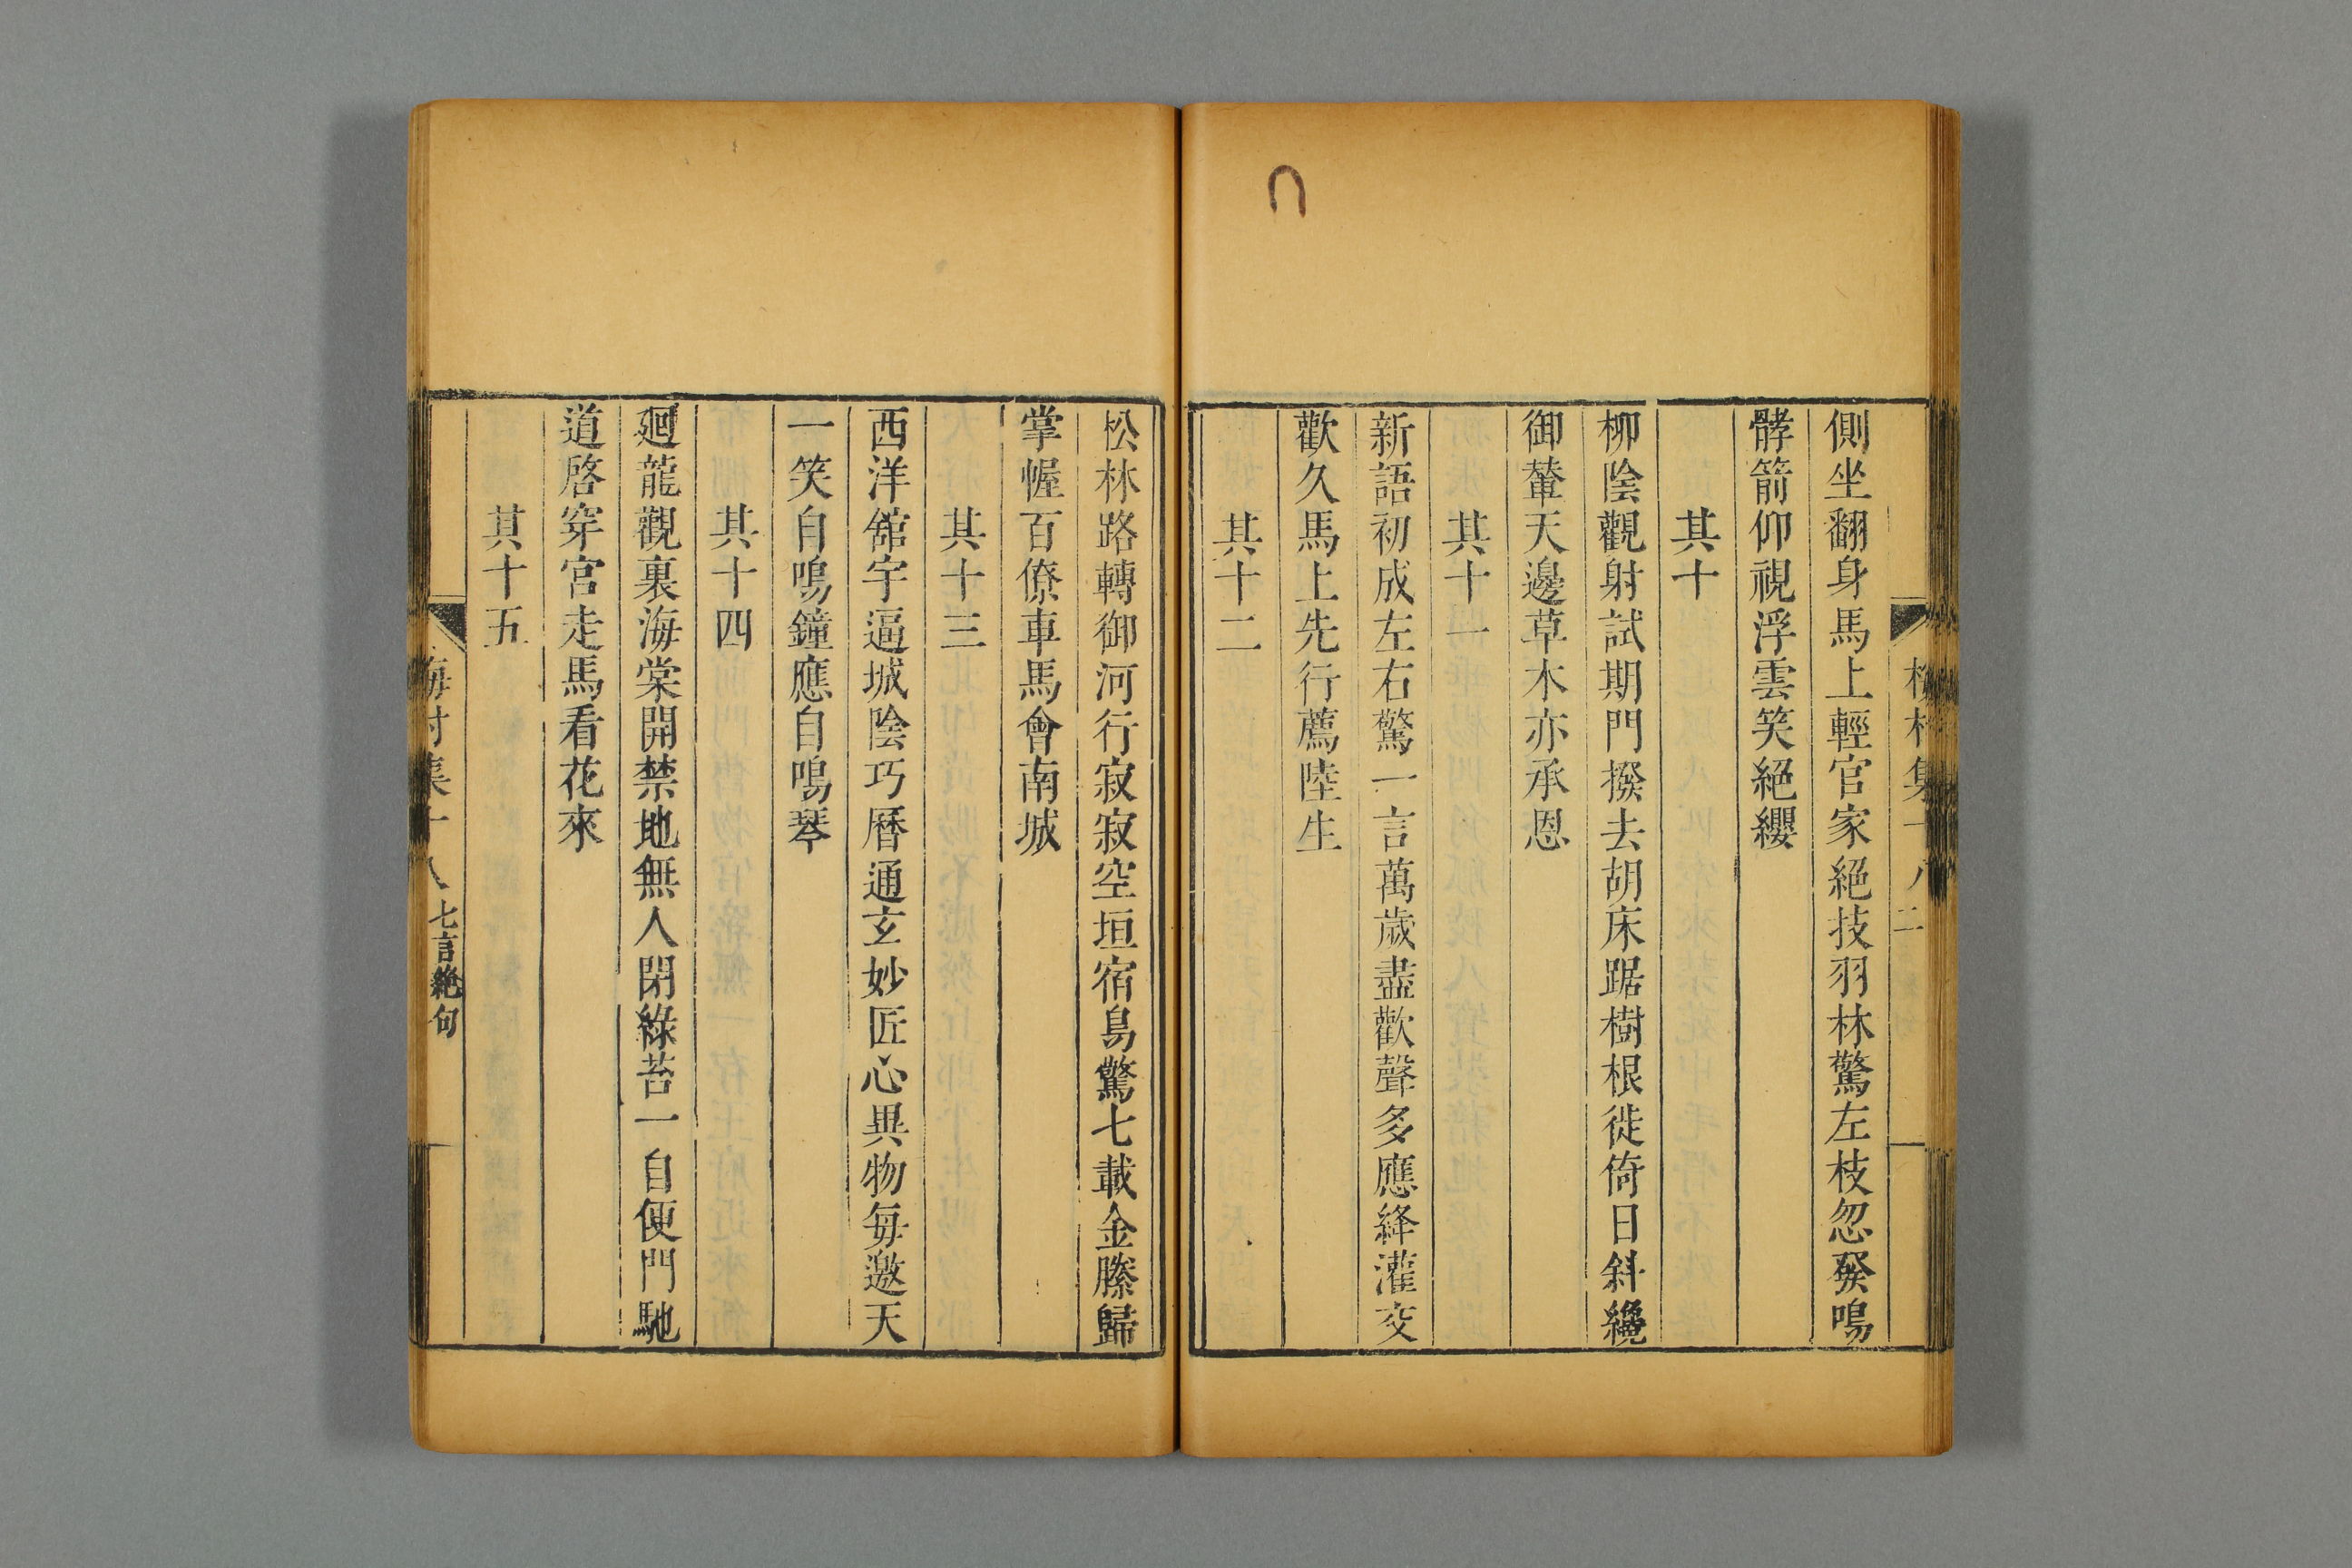 側坐翻身馬上輕官家絕技羽林驚左枝忽發鳴
髇箭仰視浮雲笑絕纓
其十
柳陰觀射試期門撥去胡床踞樹根徙倚日斜纔
御輦天邊草木亦承恩
其十一
新語初成左右驚一言萬歲盡歡聲多應絳灌交
歡久馬上先行薦陸生
其十二
松林路轉御河行寂寂空垣宿鳥驚七載金縢歸
掌幄百僚車馬會南城
其十三
西洋舘宇逼城陰巧曆通玄妙匠心異物每邀天
一笑自鳴鐘應自鳴琴
其十四
廻龍觀裏海棠開禁地無人閉綠苔一自便門馳
道啓穿宮走馬看花來
其十五
梅村集十八 七言絕句